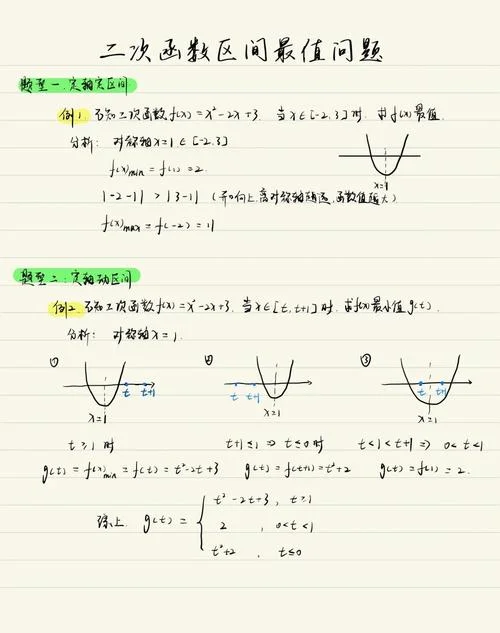 二次函数区间最值问题
题型一：定轴定区间
例1. 已知二次函数f(x)=x²-2x+3, 当x∈[-2,3]时, 求f(x)最值.
分析: 对称轴x=1∈[-2,3]
f(x)min=f(1)=2.
|-2-1|>|3-1| (开口向上,离对称轴越远,函数值越大)
f(x)max=f(-2)=11
x=1
题型二：定轴动区间
例2. 已知二次函数f(x)=x²-2x+3, 当x∈[t,t+1]时, 求f(x)最小值g(t).
分析: 对称轴x=1.
① ② ③
t t+1 t t+1 t t+1
x=1 x=1 x=1
t≥1时 t+1≤1⇒t≤0时 t<1<t+1⇒0<t<1
g(t)=f(x)min=f(t)=t²-2t+3 g(t)=f(t+1)=t²+2 g(t)=f(1)=2.
t²-2t+3, t≥1
综上. g(t)={ 2, 0<t<1
t²+2, t≤0